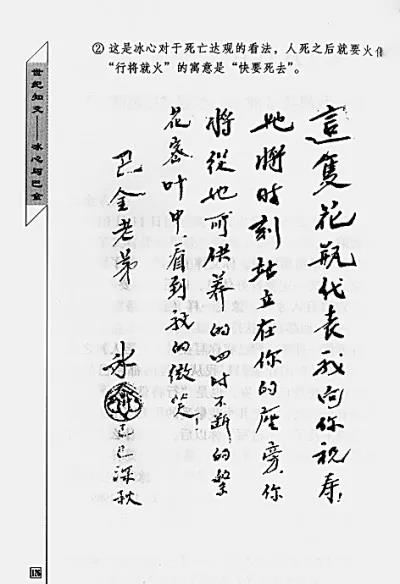 ② 这是冰心对于死亡达观的看法，人死之后就要火
“行将就火”的寓意是“快要死去”。
世纪知交——冰心与巴金
這隻花瓶代表我向你祝寿！
她將时刻站立在你的座旁，你
將從她所供养的四时不断的繁
花密叶中，看到我的微笑！
巴金老弟
冰心 己巳深秋